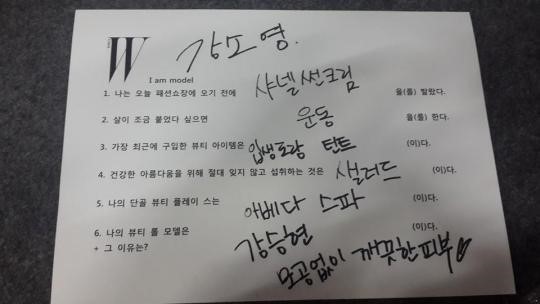 W 강소영.
I am model
1. 나는 오늘 패션쇼장에 오기 전에 샤넬 썬크림 을(를) 발랐다.
2. 살이 조금 붙었다 싶으면 운동 을(를) 한다.
3. 가장 최근에 구입한 뷰티 아이템은 입생로랑 틴트 (이)다.
4. 건강한 아름다움을 위해 절대 잊지 않고 섭취하는 것은 샐러드 (이)다.
5. 나의 단골 뷰티 플레이스는 아베다 스파 (이)다.
6. 나의 뷰티 롤 모델은 강승현 (이)다.
+ 그 이유는? 모공없이 깨끗한 피부